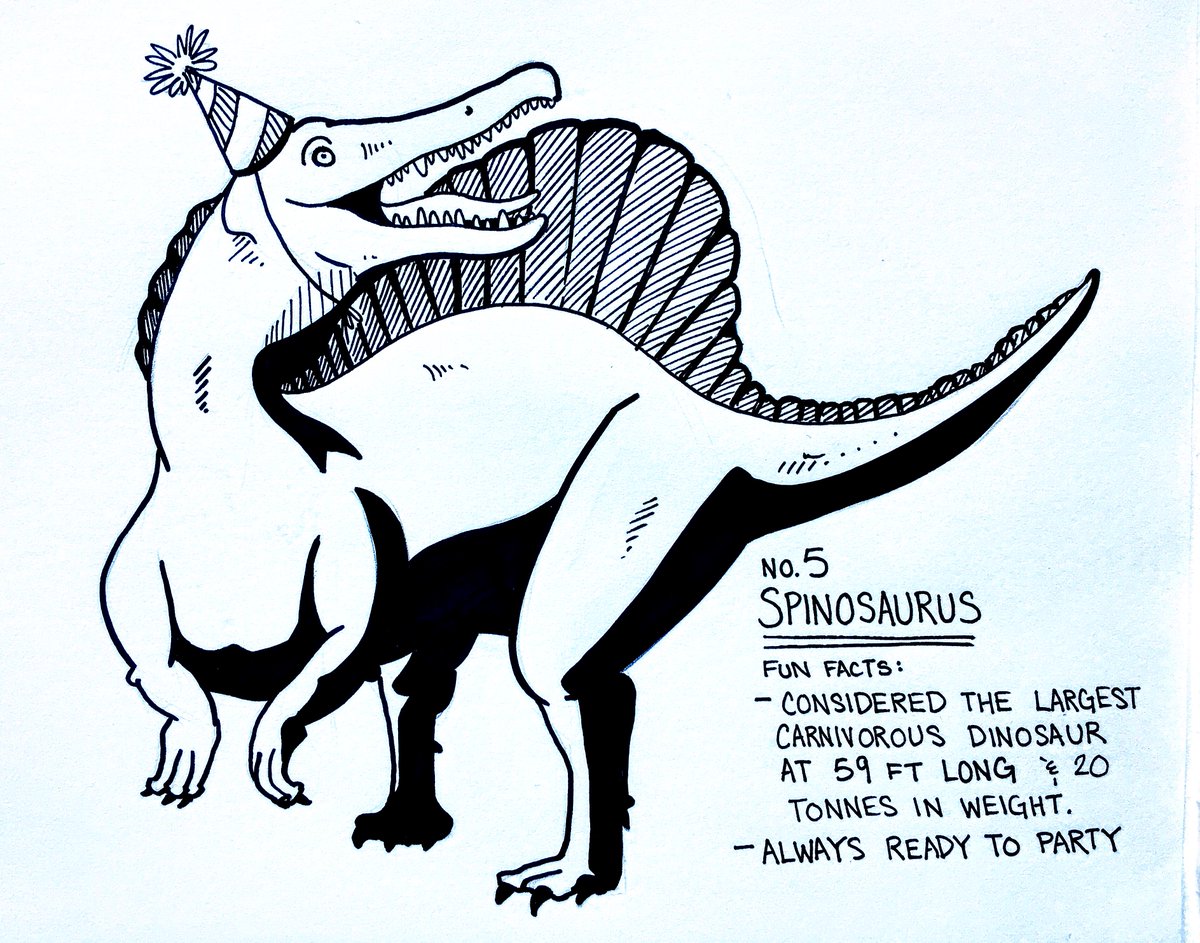 NO. 5
SPINOSAURUS
FUN FACTS:
- CONSIDERED THE LARGEST
CARNIVOROUS DINOSAUR
AT 59 FT LONG & 20
TONNES IN WEIGHT.
- ALWAYS READY TO PARTY